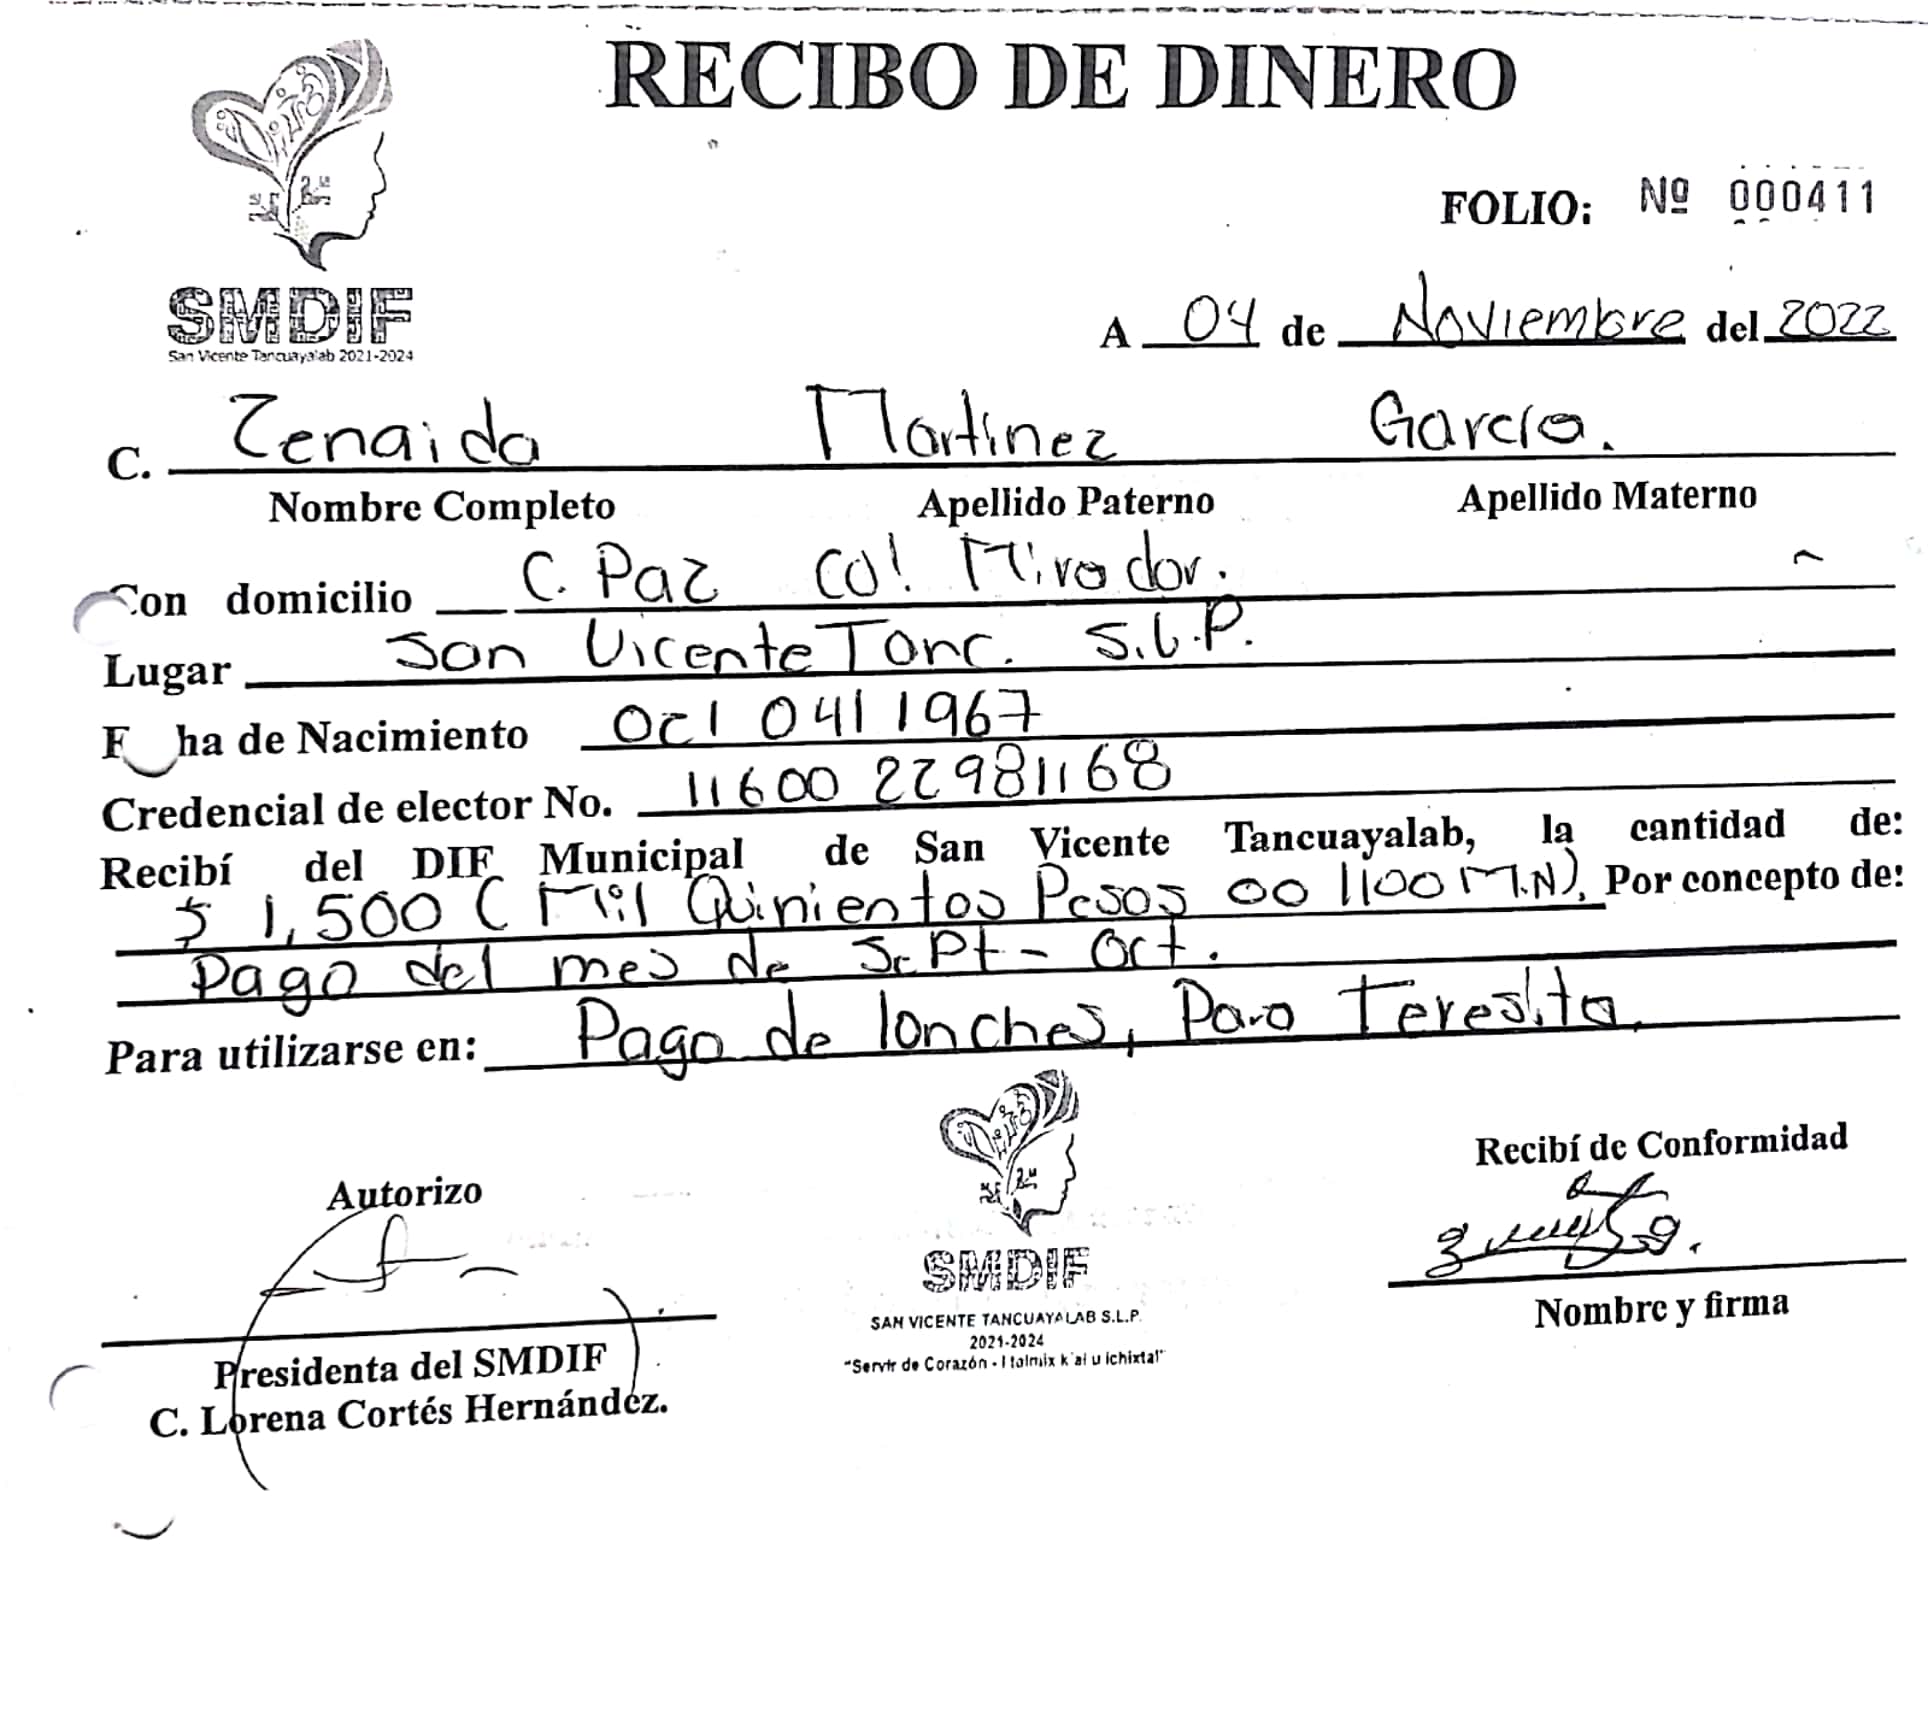 RECIBO DE DINERO
FOLIO: Nº 000411
SMDIF
San Vicente Tancuayalab 2021-2024
A 04 de Noviembre del 2022
C. Zenaida Martinez Garcia.
Nombre Completo Apellido Paterno Apellido Materno
Con domicilio C. Paz Col Mirador.
Lugar San Vicente Tanc. S.L.P.
F ha de Nacimiento Oct 04 / 1967
Credencial de elector No. 1160022981168
Recibí del DIF Municipal de San Vicente Tancuayalab, la cantidad de:
$ 1,500 ( Mil Quinientos Pesos 00/100 M.N), Por concepto de:
Pago del mes de Sept - Oct.
Para utilizarse en: Pago de lonches, Para Teresita.
Autorizo
Recibí de Conformidad
SMDIF
SAN VICENTE TANCUAYALAB S.L.P.
2021-2024
"Servir de Corazón - I tolmix k'al u ichixtal"
Nombre y firma
Presidenta del SMDIF
C. Lorena Cortés Hernández.